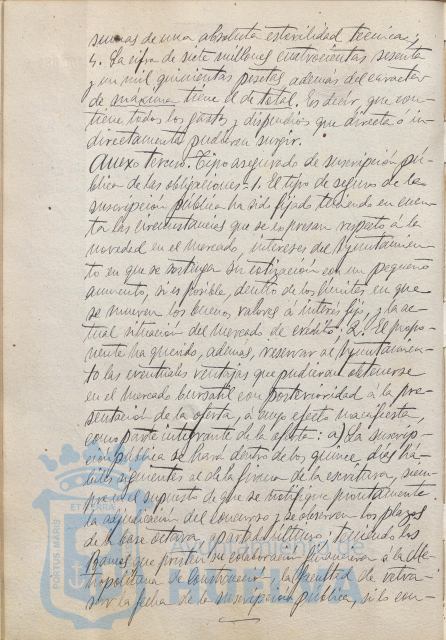 sumas de una absoluta esterilidad técnica;
4. La cifra de siete millones cuatrocientas sesenta
y un mil quinientas pesetas, además del caracter
de máxima tiene el de total. Es decir, que con-
tiene todos los gastos y dispendios que directa o in-
directamente pudieran surgir.
Anexo tercero. Tipo asegurado de suscripción pú-
blica de las obligaciones.- 1. El tipo de seguro de la
suscripción pública ha sido fijado teniendo en cuen-
ta las circunstancias que se expresan respecto á la
novedad en el mercado, intereses del Ayuntamien-
to en que se sostenga su cotización con un pequeño
aumento, si es posible, dentro de los límites en que
se mueven los buenos valores á interés fijo, y la ac-
tual situación del mercado de crédito. 2. El propo-
nente ha querido, además, reservar al Ayuntamien-
to las eventuales ventajas que pudieran obtenerse
en el mercado bursátil con posterioridad á la pre-
sentación de la oferta, á cuyo efecto manifiesta,
como parte integrante de la oferta: a) La suscrip-
ción pública se hará dentro de los quince días há-
biles siguientes al de la firma de la escritura, siem-
pre en el supuesto de que se notifique prontamente
la adjudicación del concurso y se observen los plazos
de la base octava, apartado último, teniendo los
Bancos que prestan su colaboración financiera á la Me-
tropolitana de Construcción, la facultad de retra-
sar la fecha de la suscripción pública, si lo con-
ET TERRÆ
PORTUS MARIS
Ayuntamiento de
HUELVA